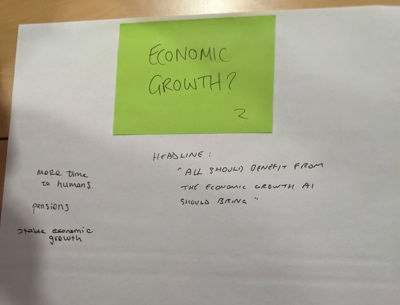 ECONOMIC
GROWTH?
2
HEADLINE:
"ALL SHOULD BENEFIT FROM
THE ECONOMIC GROWTH AI
SHOULD BRING"
more time
to humans
pensions
stable economic
growth